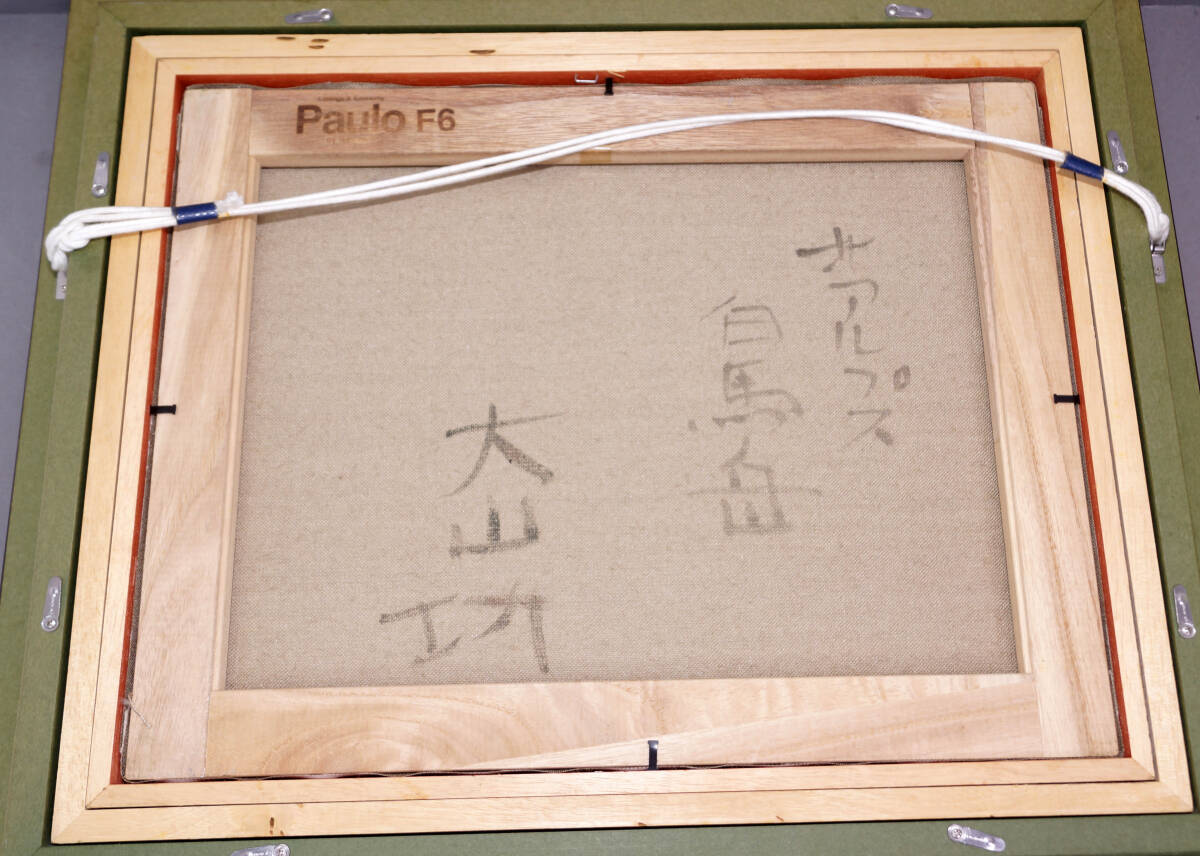 Paulo F6
北アルプス
白馬岳
大山功